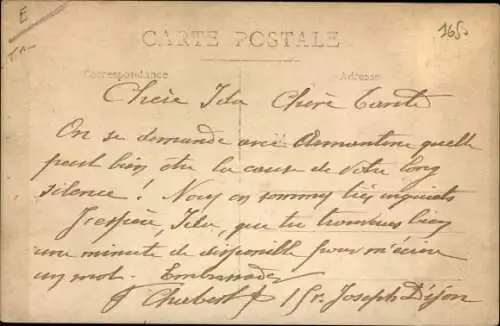 E
165
CARTE POSTALE
Correspondance
Adresse
Chère Ida Chère tante
On se demande avec Armantine quelle
peut bien être la cause de votre long
silence! Nous en sommes très inquiets
J'espère, Ida, que tu trouveras bien
une minute de disponible pour m'écrire
un mot. Embrassades
1 Gr. Joseph Dijon